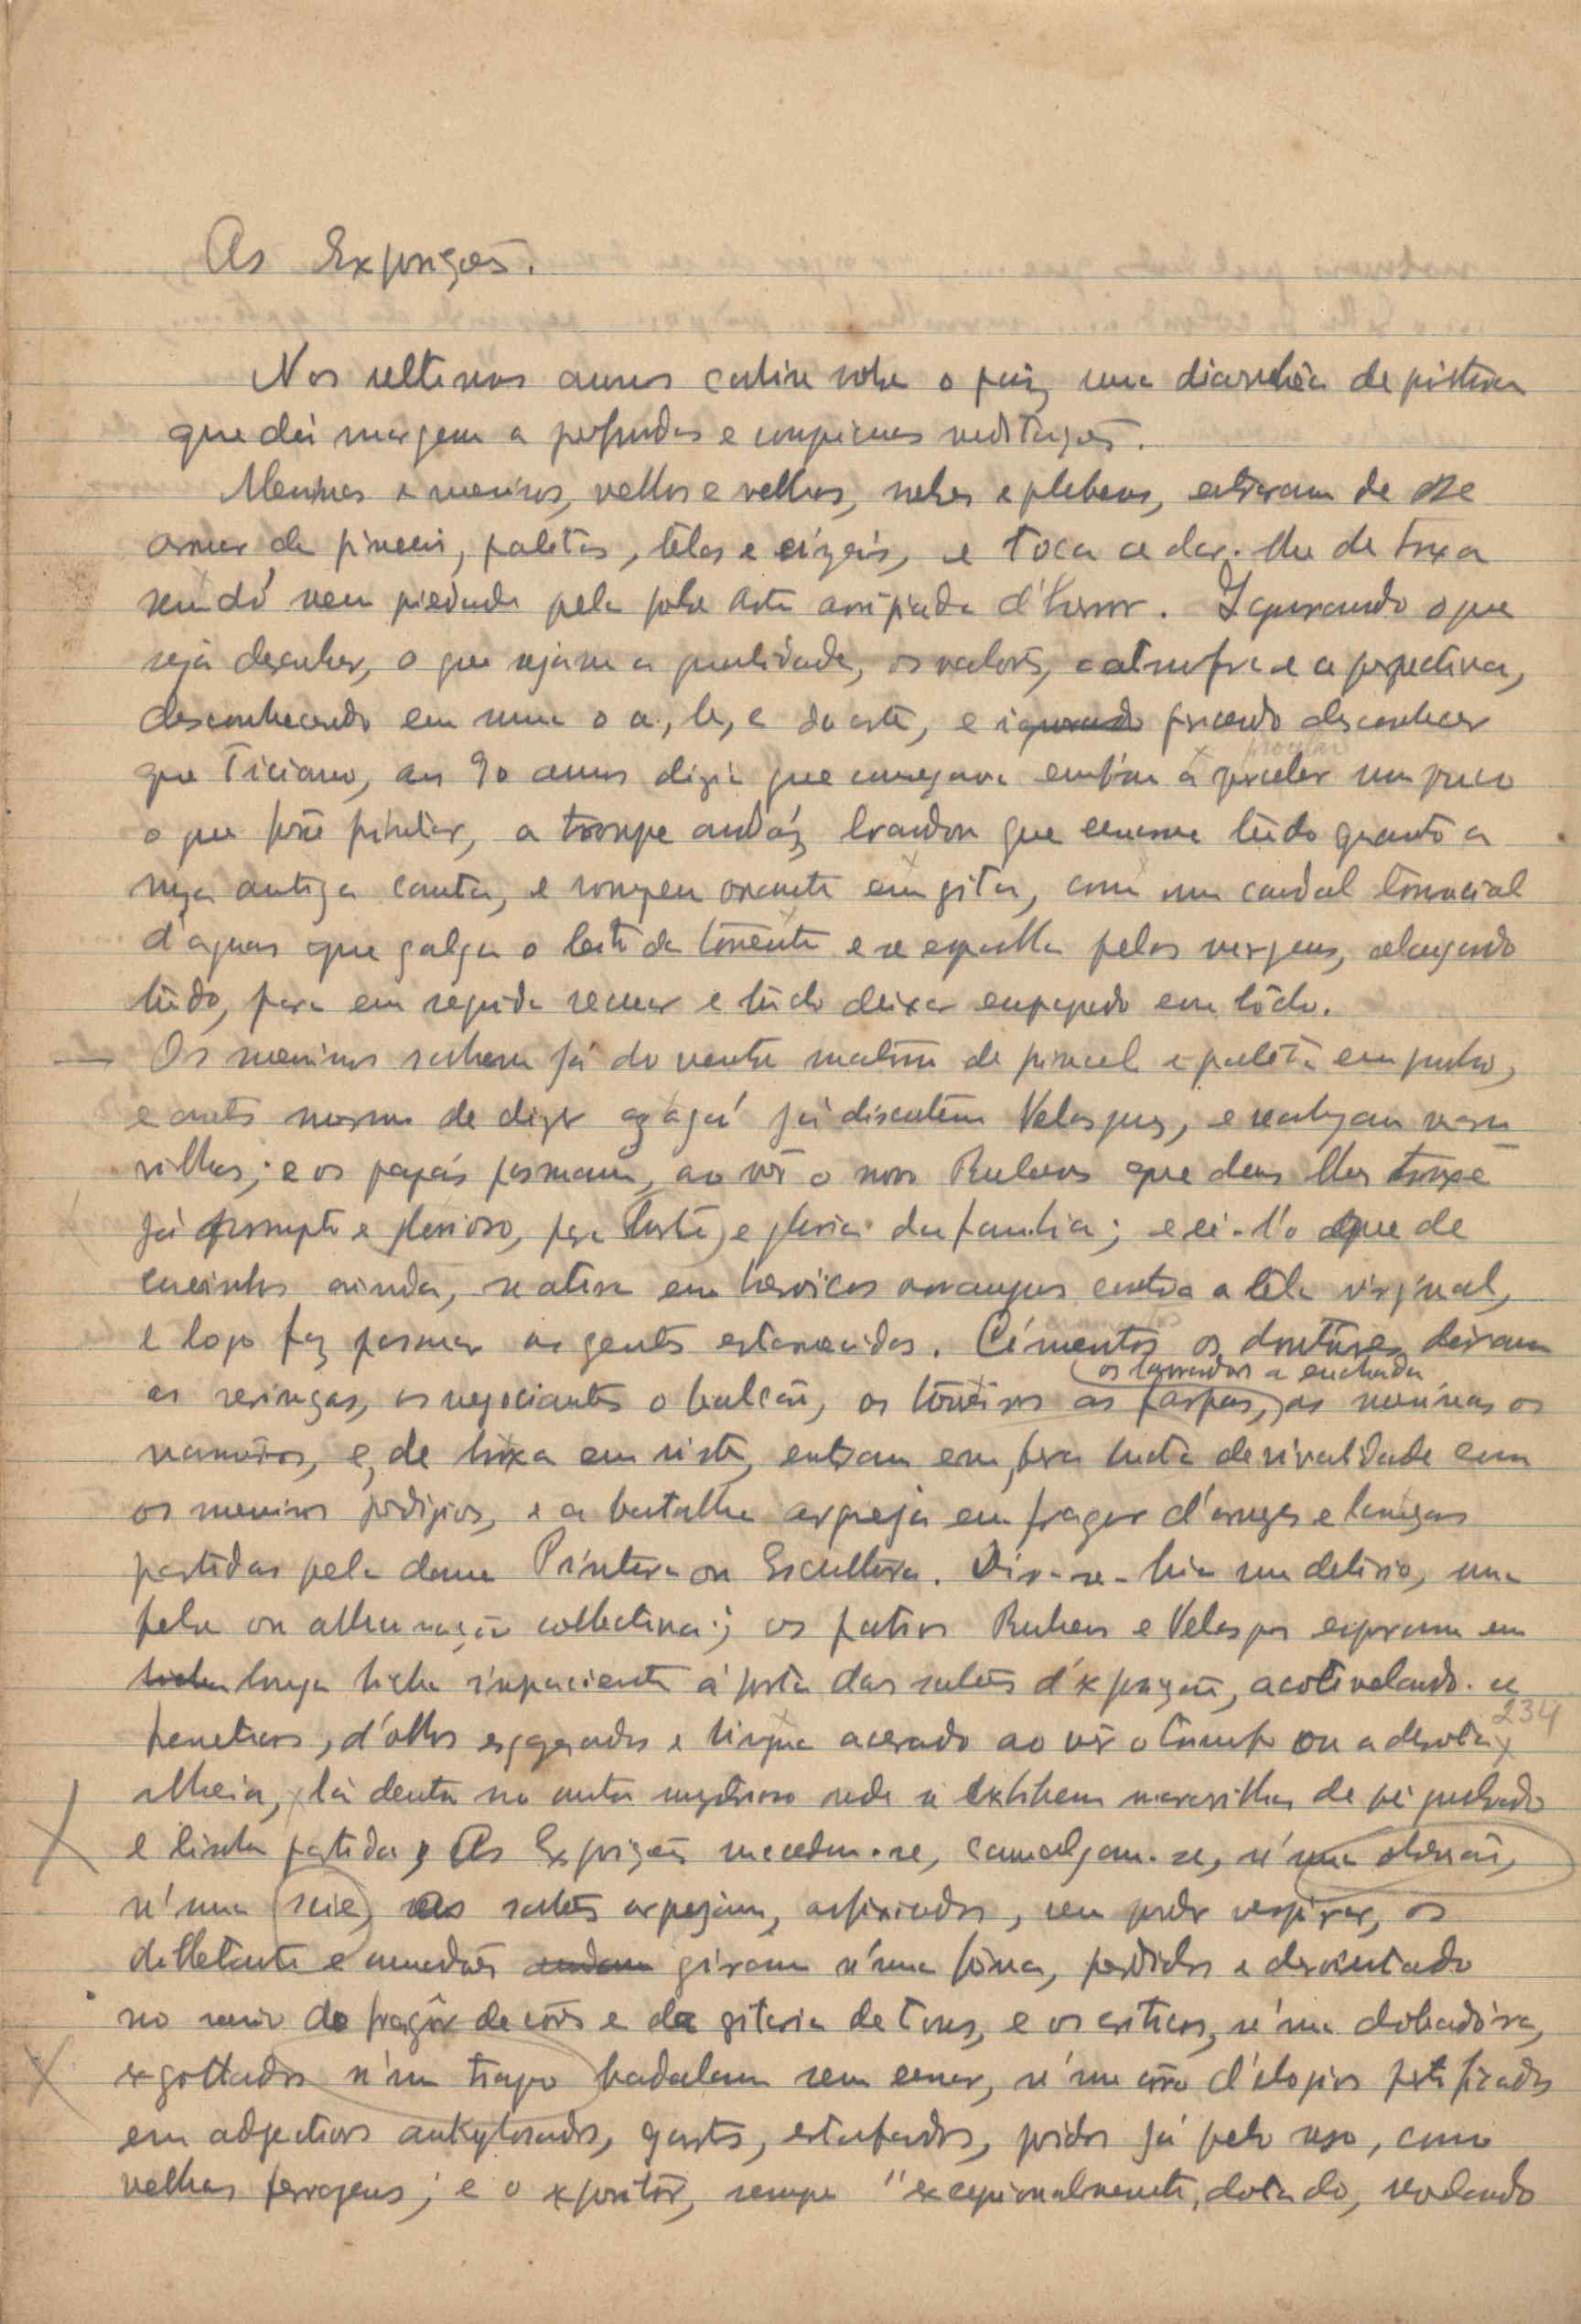 As Exposições.
Nos ultimos annos cahiu sobre o paiz uma diarrhéa de pintura
que dá margem a profundas e conspicuas meditações.
Meninas e meninos, velhos e velhas, nobres e plebeus, entraram de se
armar de pinceis, paletas, télas e cinzeis, e toca a dar-lhe de broxa
sem dó nem piedade pela pobre Arte arripiada d'horror. Ignorando o que
seja desenhar, o que sejam a qualidade, os valores, a atmosfera e a perspectiva,
desconhecendo em suma o a, b, c da arte, e ignorando fincando desconhecer
que Ticiano, aos 90 annos dizia que começava emfim a perceber um pouco
o que fosse pintar, a troupe audáz, brandou que a musa tudo quanto a
musa antiga canta, e rompeu avante em gritos, com um caudal torrencial
d'aguas que galga o leito da torrente e se espalha pelas margens, alagando
tudo, para em seguida secar e tudo deixar empapado em lôdo.
— Os meninos sahem já do ventre materno de pincel e paleta em punho,
e antes mesmo de dizer agágá já discutem Velasquez, e realizam mara-
vilhas; e os papás pasmam, ao vêr o novo Rubens que deus lhes trouxe
já prompto e glorioso, para lustre e gloria da familia; e ei-l'o que de
cueirinhos ainda, se atira em heroicos arranques contra a téla virginal,
e logo faz pasmar as gentes estarrecidas. Ciumentos os doutores deixam
os lavradores a enchada
as seringas, os negociantes o balcão, os toureiros as farpas, as meninas os
namoros, e, de broxa em riste, entram em fera lucta de rivalidade com
os meninos prodigios, e a batalha arqueja em fragor d'armas e lanças
partidas pela dama Pintura ou Escultura. Dir-se-hia um delirio, uma
febre ou allucinação collectiva; os futuros Rubens e Velasquez esperam em
bicha longa bicha impaciente á porta dos salões d'exposição, acotovelando-se
234
freneticos, d'olhos esgazeados e lingua acerada ao vêr o triunfo ou a derrota
alheia, lá dentro no antro mysterioso onde se exhibem maravilhas de pé quebrado
e linha partida, As Exposições succedem-se, cavalgam-se, n'uma obsessão,
n'uma scie, os salões arquejam, asfixiados, sem poder respirar, os
dilletantes e amadores andam giram n'uma fona, perdidos e desorientados
no meio do fragôr de côres e da gritaria de tons, e os criticos, n'uma dobadoira,
exgottados n'um trapo badalam sem cessar, n'um côro d'elogios petrificados
em adjectivos ankylosados, gastos, estafados, poídos já pelo uso, como
velhas ferragens; e o expositôr, sempre "excepcionalmente dotado, revelando